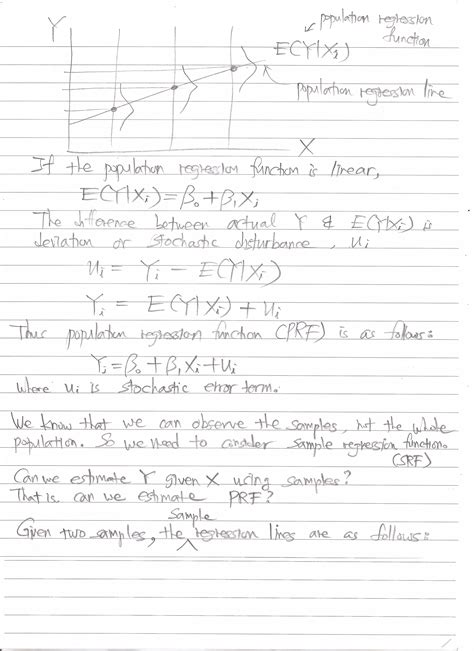 population regression
function
Y
E(Y|Xi)
population regression line
X
If the population regression function is linear,
E(Y|Xi) = β0 + β1Xi
The difference between actual Y & E(Y|Xi) is
deviation or stochastic disturbance, Ui
Ui = Yi − E(Y|Xi)
Yi = E(Y|Xi) + Ui
Thus population regression function (PRF) is as follows:
Yi = β0 + β1Xi + Ui
where Ui is stochastic error term.
We know that we can observe the samples, not the whole
population. So we need to consider sample regression function.
(SRF)
Can we estimate Y given X using samples?
That is can we estimate PRF?
Sample
Given two samples, the regression lines are as follows: